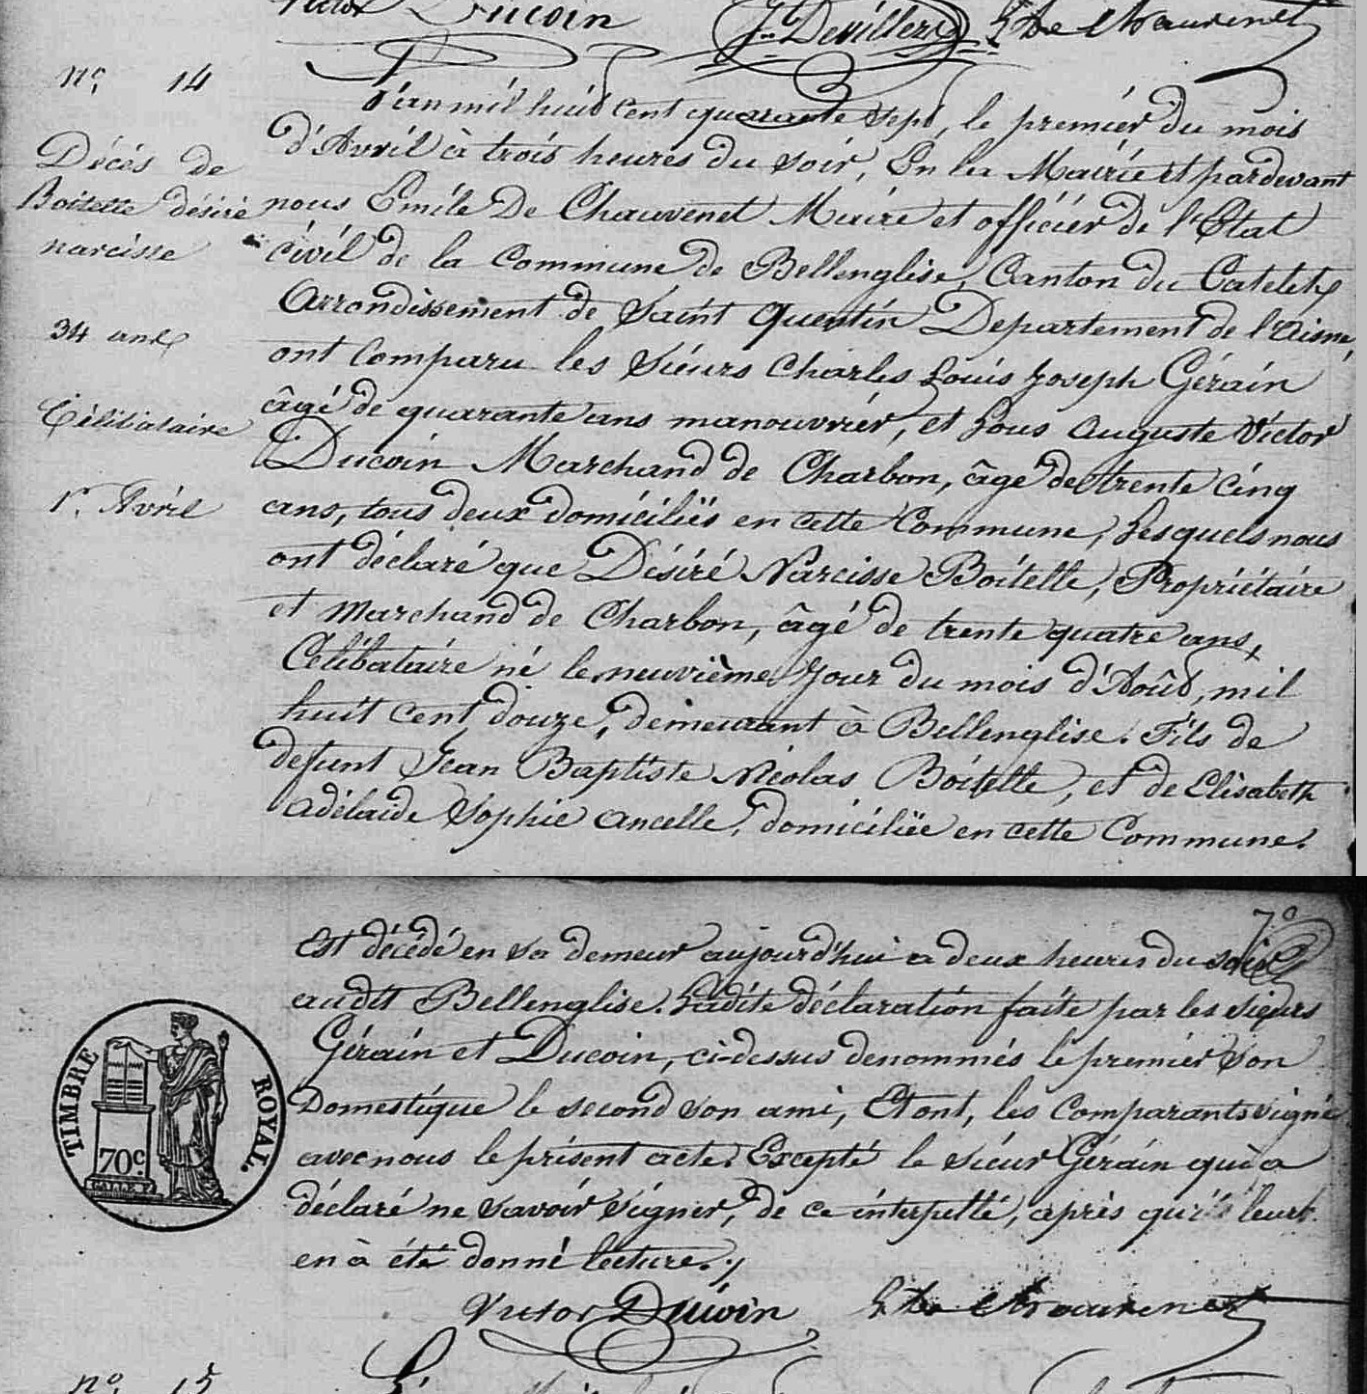 Victor Ducoin J. Devillers
n.º 14
L'an mil huit cent quarante sept, le premier du mois
d'Avril à trois heures du soir, En la Mairie et pardevant
Décés de
Boitelle désiré
narcisse
34 ans
Célibataire
1.er Avril
nous Emile De Chauvenet Maire et officier de l'Etat
civil de la Commune de Bellenglise, Canton du Catelet,
Arrondissement de Saint Quentin Departement de l'Aisne,
ont comparu les Sieurs Charles Louis Joseph Gérain
âgé de quarante ans manouvrier, et Louis Auguste Victor
Ducoin Marchand de Charbon, âgé de trente cinq
ans, tous deux domiciliés en cette Commune, Lesquels nous
ont déclaré que Désiré Narcisse Boitelle, Propriétaire
et Marchand de Charbon, âgé de trente quatre ans,
Célibataire né le neuvième Jour du mois d'Août, mil
huit cent douze, demeurant à Bellenglise. Fils de
defunt Jean Baptiste Nicolas Boitelle, et de Elisabeth
Adélaide Sophie Ancelle, domiciliée en cette Commune.
Est décédé en sa demeur aujourd'hui a deux heures du soir
audit Bellenglise. Ladite déclaration faite par les sieurs
Gérain et Ducoin, ci-dessus denommés le premier son
Domestique le second son ami, Et ont, les Comparants signé
avec nous le présent acte. Excepté le sieur Gérain qui a
déclaré ne savoir signer, de ce interpellé, après qu'il leur
en à été donné lecture.
TIMBRE ROYAL.
70c
Victor Ducoin E De Chauvenet
nº. 15